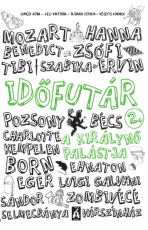 GIMESI DÓRA – JELI VIKTÓRIA – TASNÁDI ISTVÁN – VÉSZITS ANDREA
MOZART HANNA
BENEDICT ZSÓFI
TIBI SZABIKA ERVIN
IDŐFUTÁR
POZSONY BÉCS 2.
CHARLOTTE A KIRÁLYNŐ
KEMPELEN PALÁSTJA
BORN EHWATON
EGER LUIGI GALVANI
SÁNDOR ZOMBIVÉCÉ
SELMECBÁNYA VÁRSZÍNHÁZ